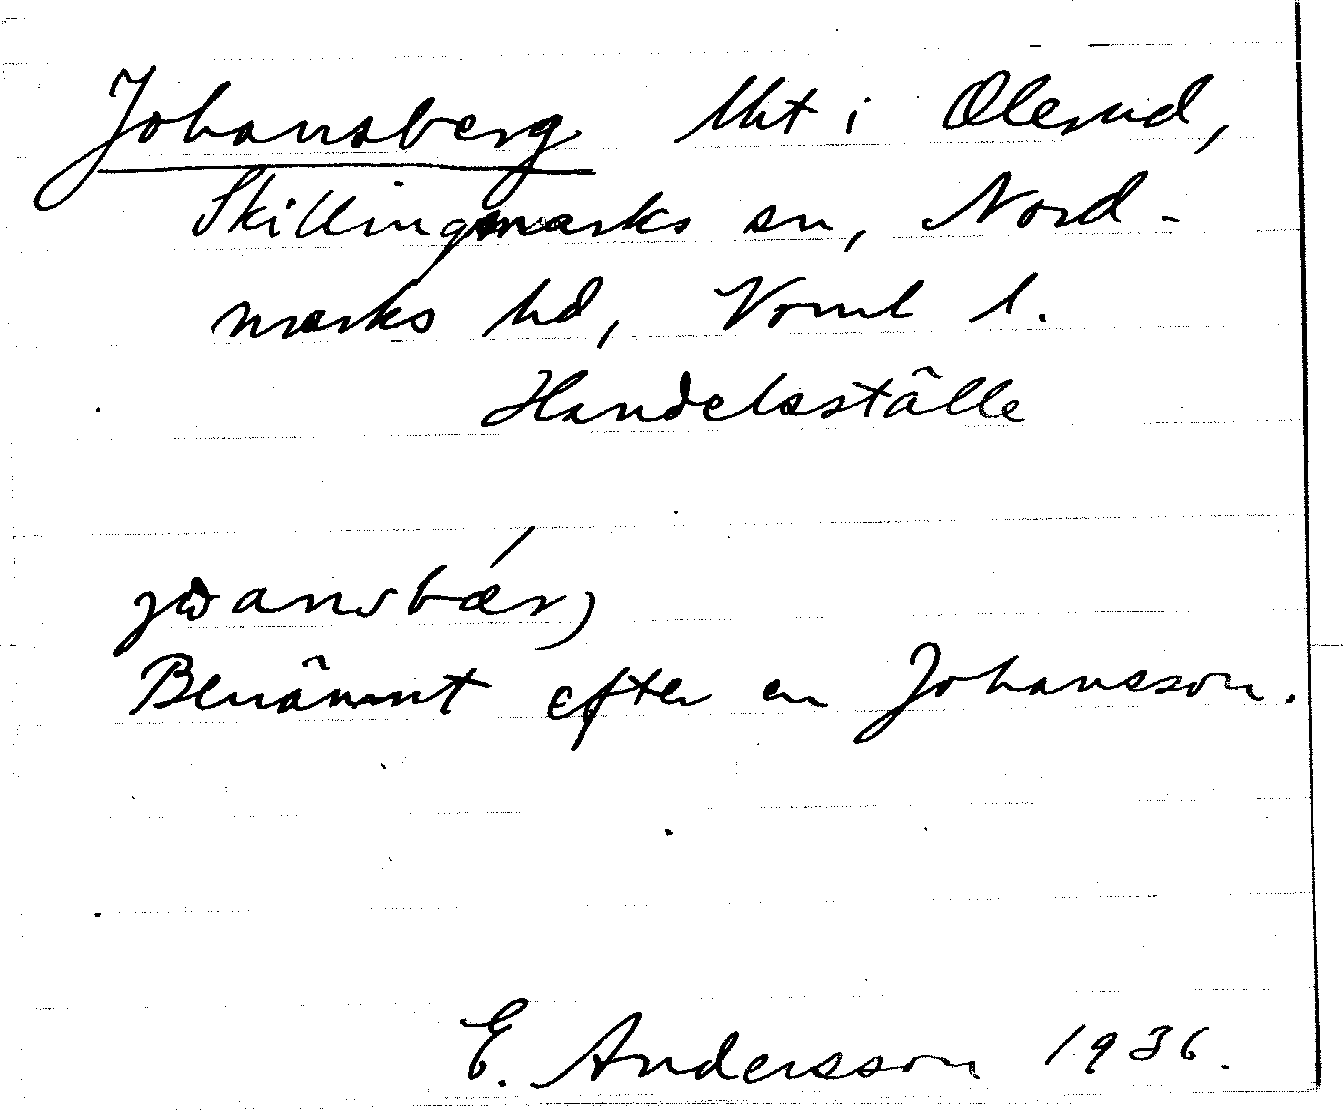 Johansberg lht i Olerud,
Skillingmarks sn, Nord-
marks hd, Vrml l.
Handelsställe
Benämnt efter en Johansson.
E. Andersson 1936.